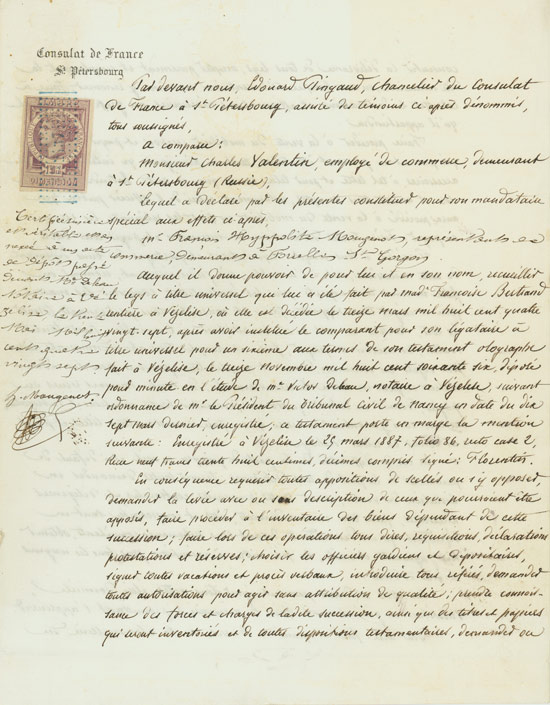 Consulat de France
St Pétersbourg
Par devant nous, Edouard Pingaud, chancelier du Consulat
de France à St Pétersbourg, assisté des témoins ci après dénommés,
tous soussignés,
A comparu:
Monsieur Charles Valentin, employé de commerce, demeurant
à St Pétersbourg (Russie),
lequel a déclaré par les présentes constituer pour son mandataire
spécial aux effets ci après
Mr François Hyppolite Mougenot représentant de
commerce demeurant à
Auquel il donne pouvoir de pour lui et en son nom, recueillir
le legs à titre universel que lui a été fait par made Françoise Bertrand
rentière à Vézelise, où elle est décédée le treize mars mil huit cent quatre
vingt-sept, après avoir institué le comparant pour son légataire à
titre universel pour un sixième aux termes de son testament olographe
fait à Vézelise, le treize novembre mil huit cent soixante six, déposé
pour minute en l'étude de me Victor notaire à Vézelise, suivant
ordonnance de mr le Président du tribunal civil de Nancy en date du dix
sept mars dernier, enregistrée; ce testament porte en marge la mention
suivante: Enregistré à Vézelise le 25 mars 1887, folio 86, recto case 2,
Reçu neuf francs trente huit centimes, décimes compris signé: Florentin.
En conséquence requérir toutes appositions de scellés ou s'y opposer,
demander la levée avec ou sans description de ceux qui pourraient être
apposés, faire procéder à l'inventaire des biens dépendant de cette
succession; faire lors de ces opérations tous dires, réquisitions, déclarations
protestations et réserves; choisir les officiers gardiens et dépositaires,
signer toutes vacations et procès verbaux, introduire tous référés, demander
toutes autorisations pour agir sans attribution de qualité; prendre connais-
sance des forces et charges de ladite succession, ainsi que des titres et papiers
qui seront inventoriés et de toutes dispositions testamentaires, demander ou
Certifié sincère
et véritable
à un acte
de dépôt passé
devant Me
notaire à
le
Mai Mil huit
cent quatre
vingt sept
h. Mougenot